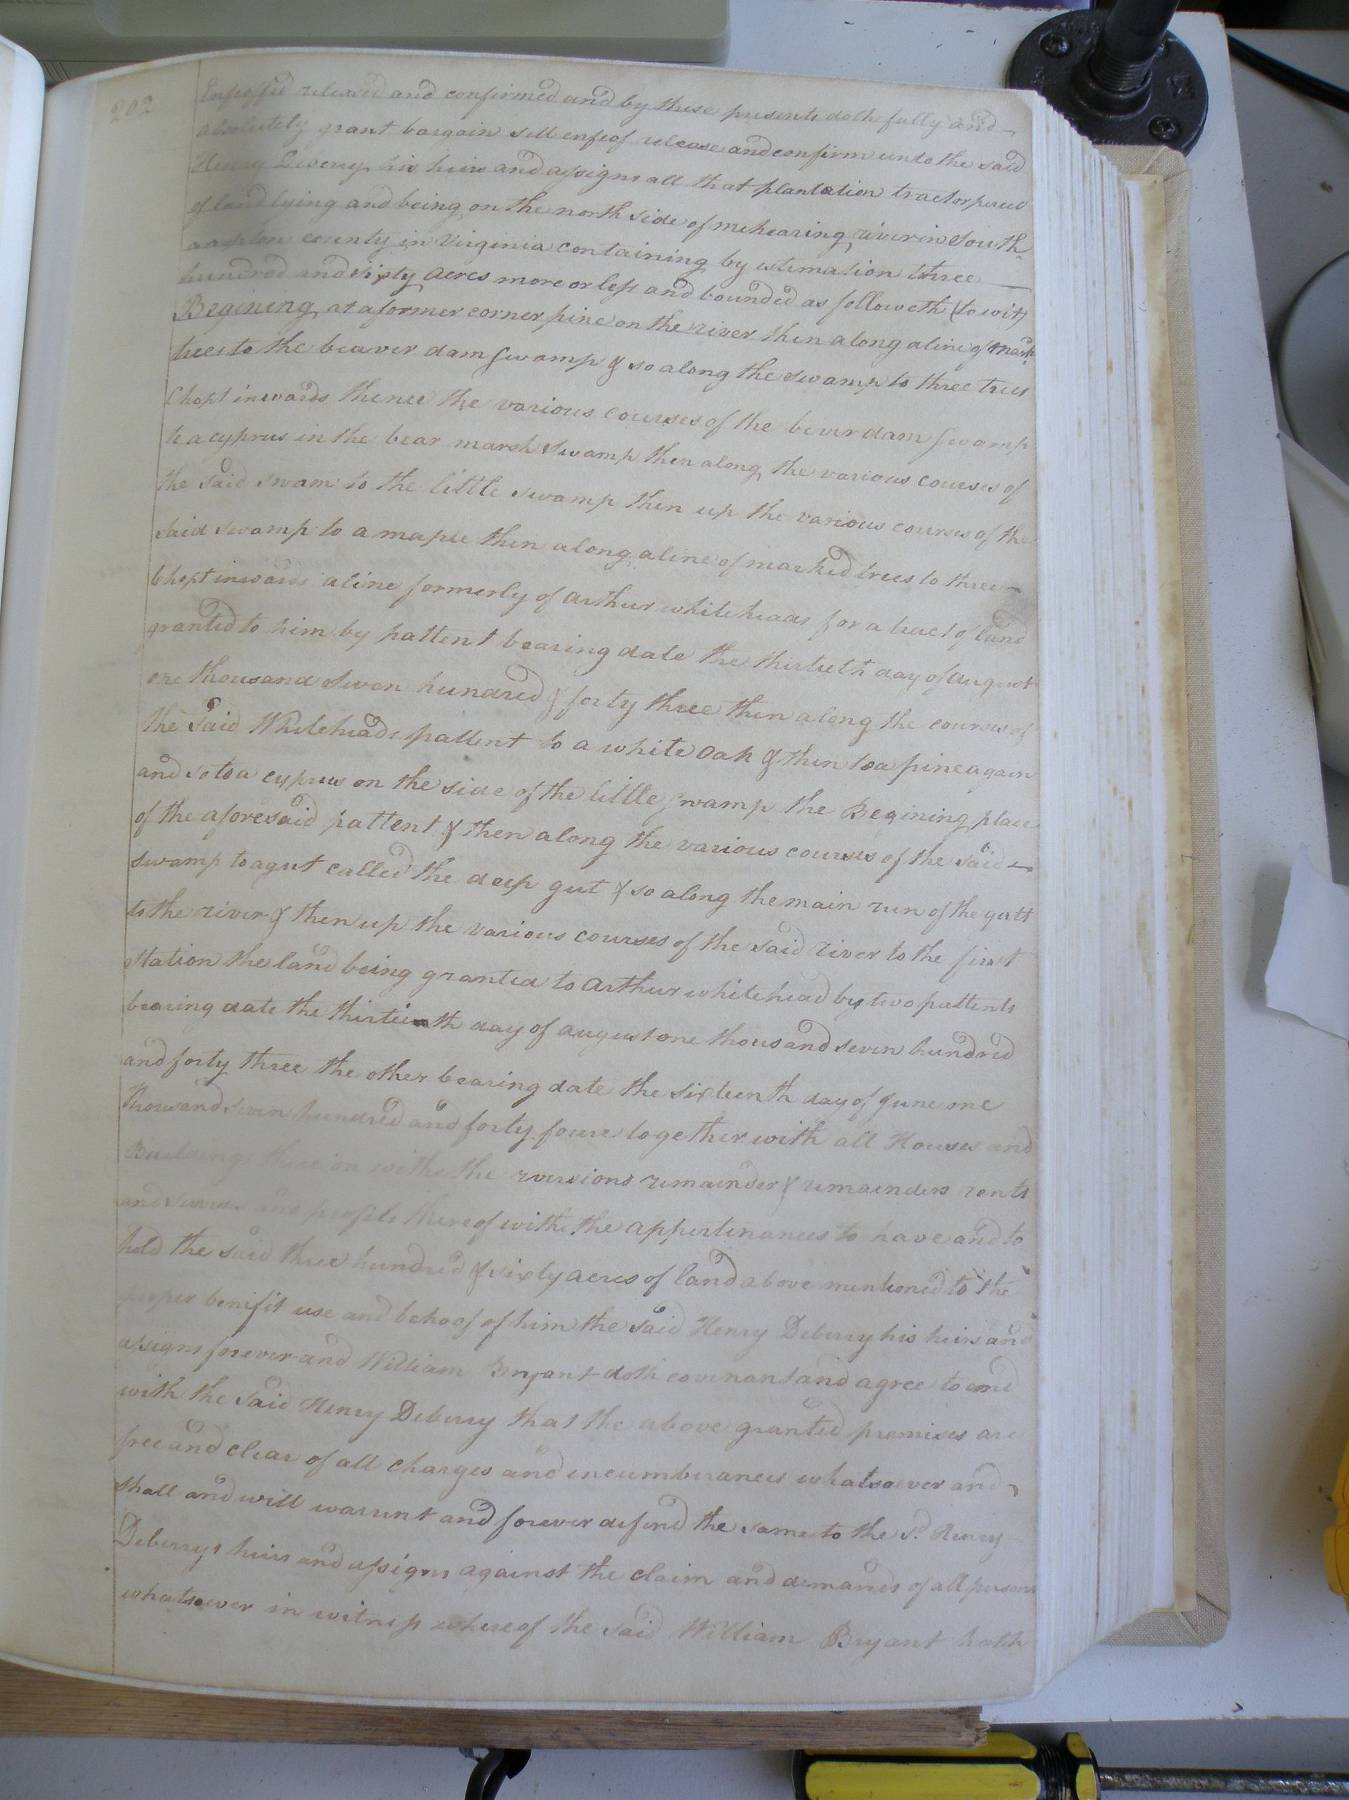 202
Enfeoffed released and confirmed and by these presents doth fully and
absolutely grant bargain sell enfeof release and confirm unto the said
Henry Deberry his heirs and assigns all that plantation tract or parcel
of land lying and being on the north side of mehearing river in South
ampton county in Virginia containing by estimation three
hundred and sixty acres more or less and bounded as followeth (to wit)
Begining at a former corner pine on the river then along a line of markd
trees to the beaver dam swamp & so along the swamp to three trees
Chopt inwards thence the various courses of the bever dam swamp
to a cyprus in the bear marsh swamp then along the various courses of
the said swam to the little swamp then up the various courses of the
said swamp to a maple then along a line of marked trees to three
Chopt inwards a line formerly of Arthur whiteheads for a tract of land
granted to him by pattent bearing date the thirtieth day of August
one thousand seven hundred & forty three then along the courses of
the said Whiteheads pattent to a white oak & then to a pine again
and so to a cyprus on the side of the little swamp the Begining place
of the aforesaid pattent & then along the various courses of the said
swamp to a gut called the deep gut & so along the main run of the gutt
to the river & then up the various courses of the said river to the first
station the land being granted to Arthur whitehead by two pattents
bearing date the thirtieth day of august one thousand seven hundred
and forty three the other bearing date the sixteenth day of June one
thousand seven hundred and forty foure together with all Houses and
Buildings there on with the the reversions remainder & remainders rents
and issues and profits thereof with the appertinances to have and to
hold the said three hundred & sixty acres of land above mentioned to the
proper benifit use and behoof of him the said Henry Deberry his heirs and
assigns forever and William Bryant doth covenant and agree to and
with the said Henry Deberry that the above granted premises are
free and clear of all charges and incumberances whatsoever and
shall and will warrunt and forever defend the same to the sd. Henry
Deberrys heirs and assigns against the claim and demands of all persons
whatsoever in witness whereof the said William Bryant hath